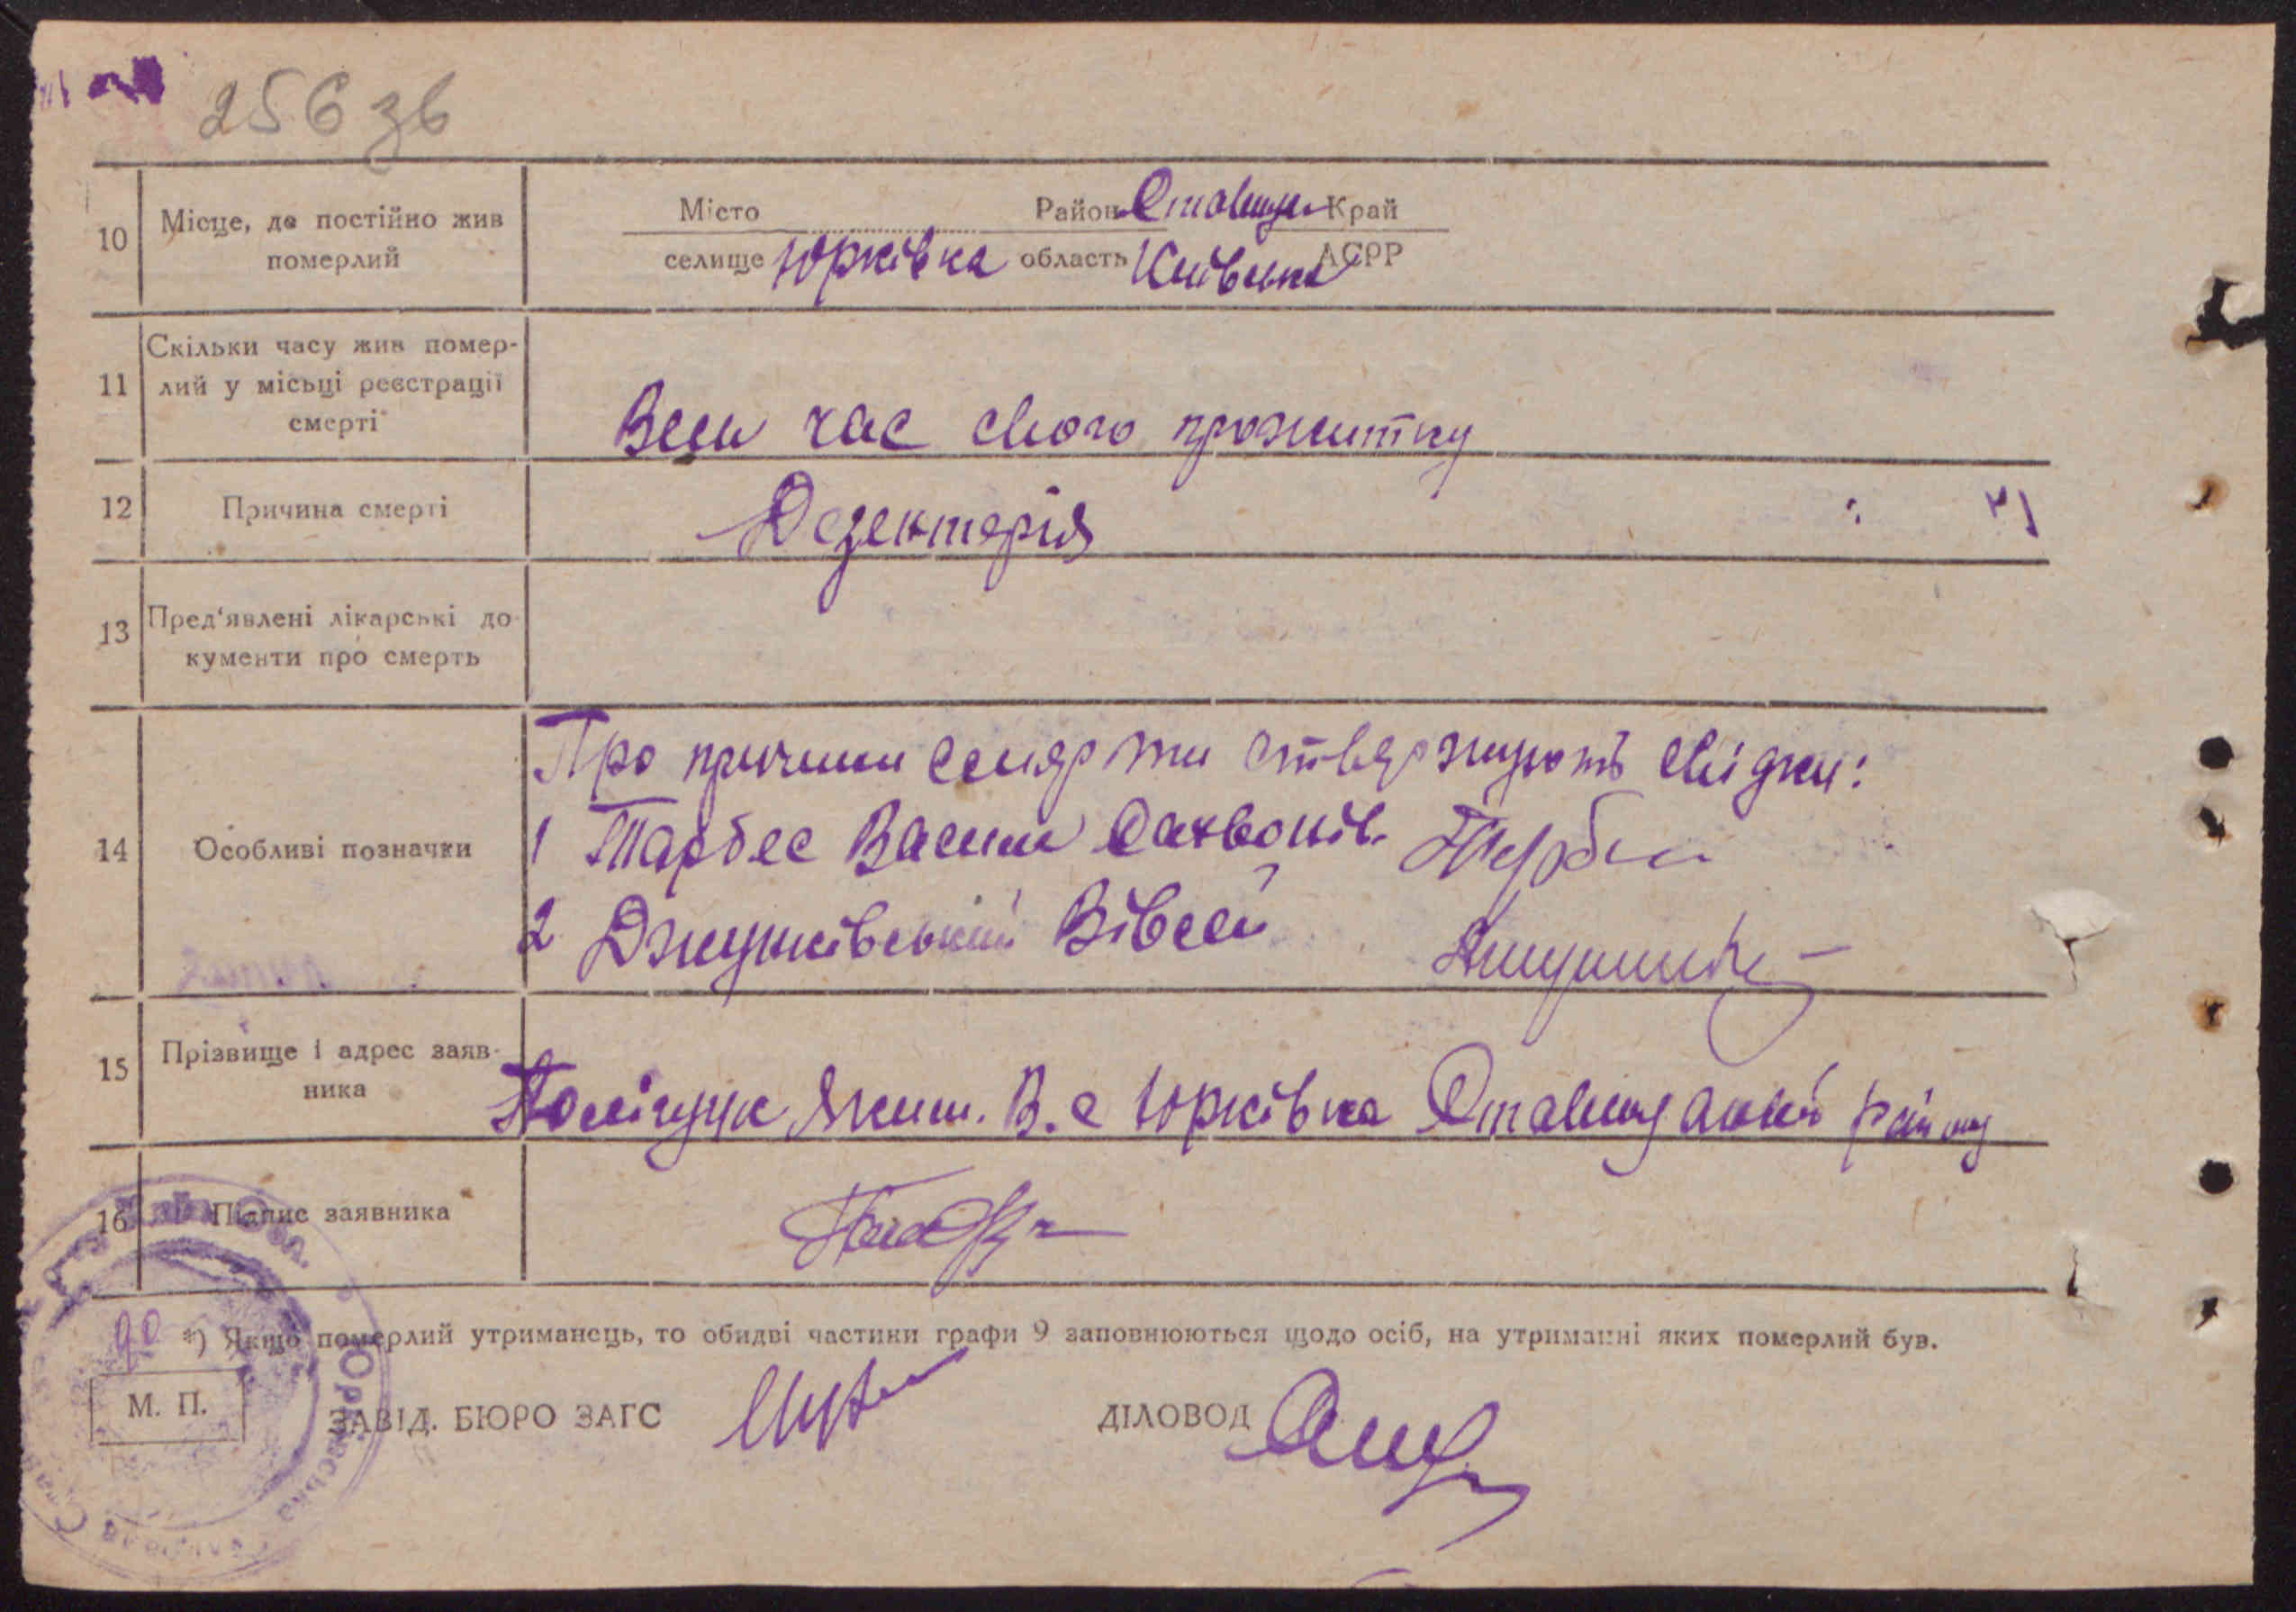 256 зв
10 Місце, де постійно жив померлий
Місто Район Ставищ. Край
селище Юрківка область Київська АСРР
11 Скільки часу жив помер-
лий у місьці реєстрації
смерті
Весь час свого прожитку
12 Причина смерті Дезентерія
13 Пред'явлені лікарські до-
кументи про смерть
14 Особливі позначки
Про причини смерти ствержують свідки:
1 Тарбес Василь
2 Джушківський Вівсей
15 Прізвище і адрес заяв-
ника
Поліщук Яким. В. с Юрківка Ставищанськ району
16 Підпис заявника
*) Якщо померлий утриманець, то обидві частини графи 9 заповнюються щодо осіб, на утриманні яких померлий був.
М. П. ЗАВІД. БЮРО ЗАГС ДІЛОВОД